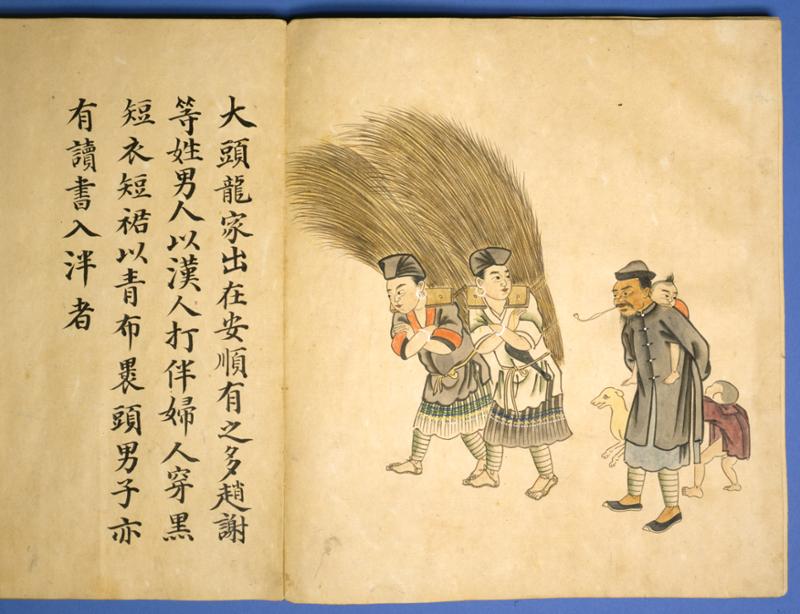 大頭龍家出在安順有之多趙謝
等姓男人以漢人打伴婦人穿黑
短衣短裙以青布裹頭男子亦
有讀書入泮者